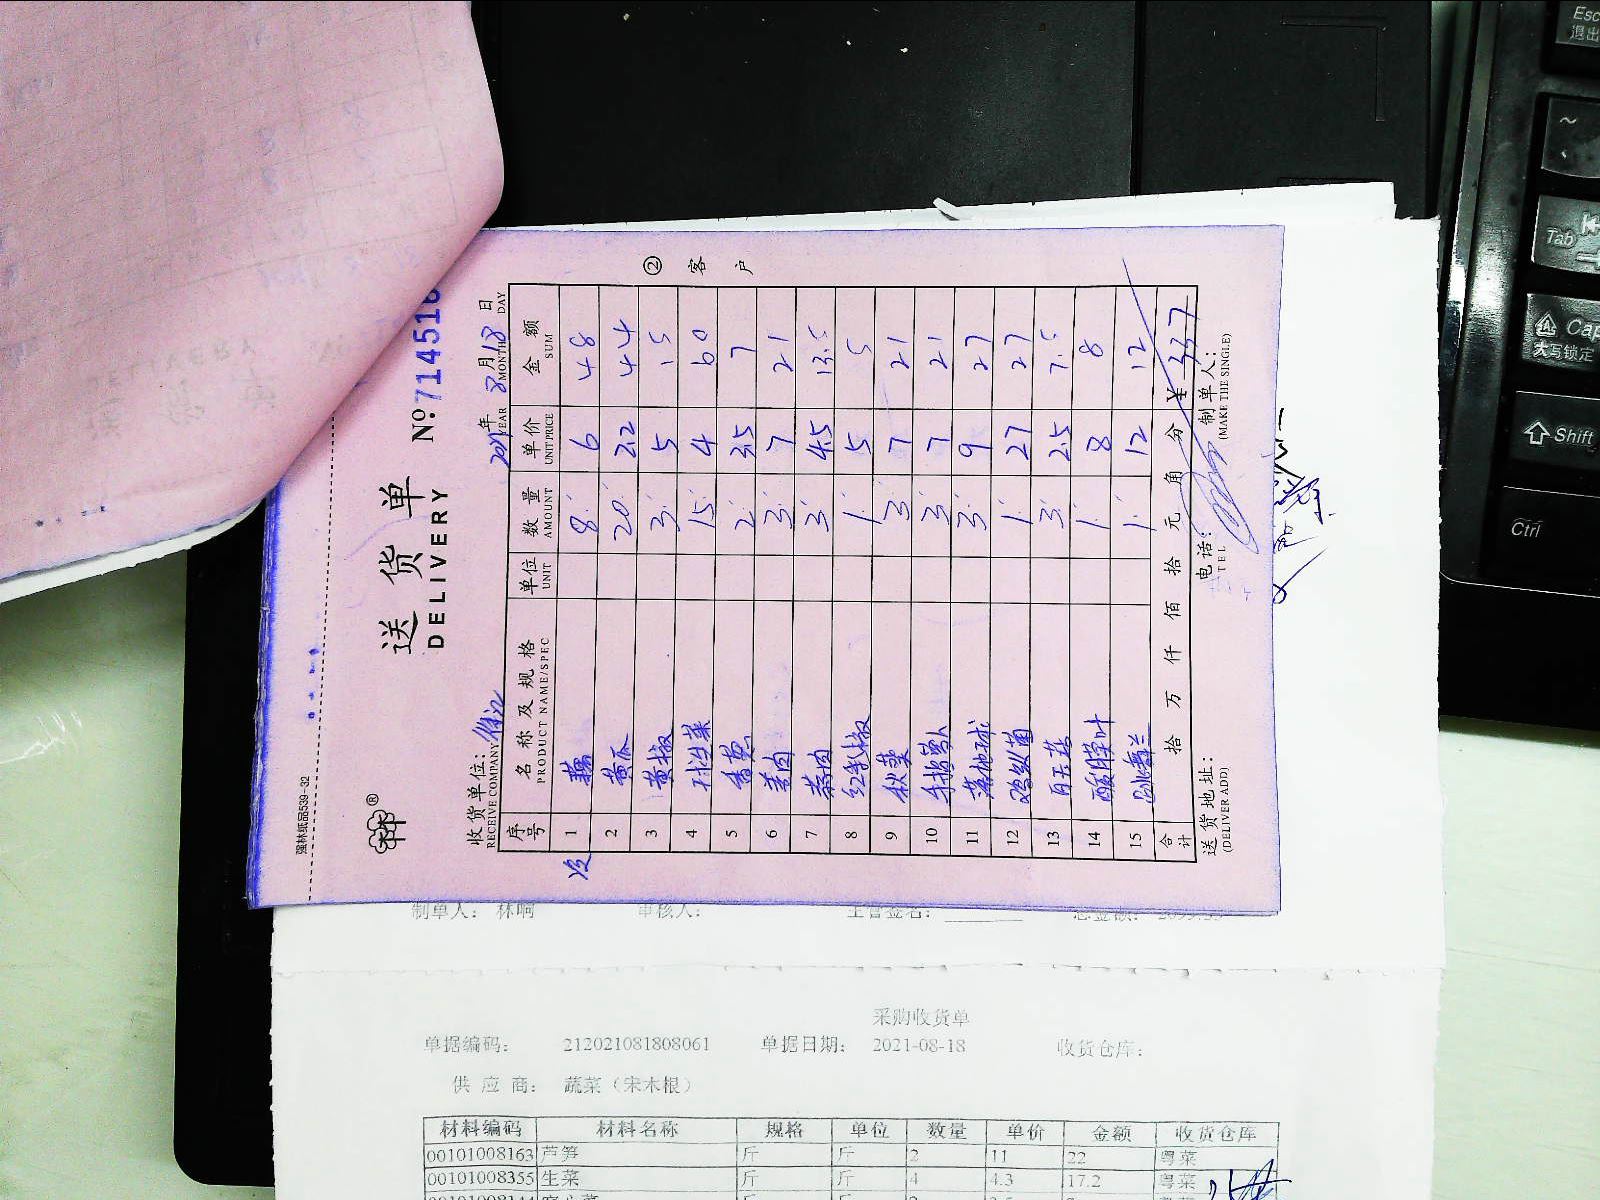 强林纸品539-32
送货单
DELIVERY
№ 714516
收货单位:
RECEIVE COMPANY
2021年 8月18日
YEAR MONTH DAY
② 客户
序号 名称及规格 单位 数量 单价 金额
PRODUCT NAME/SPEC UNIT AMOUNT UNIT PRICE SUM
1 藕 8 6 48
2 黄瓜 20 2.2 44
3 黄椒 3 5 15
4 球生菜 15 4 60
5 香葱 2 3.5 7
6 姜肉 3 7 21
7 蒜肉 3 4.5 13.5
8 红乳椒 1 5 5
9 秋葵 3 7 21
10 手指萝卜 3 7 21
11 3 9 27
12 鸡纵菌 1 27 27
13 3 2.5 7.5
14 酸膜叶 1 8 8
15 跳舞兰 1 12 12
合计 拾 万 仟 佰 拾 元 角 分 ¥ 337
送货地址: 电话: 制单人:
(DELIVER ADD) TEL (MAKE THE SINGLE)
制单人: 林啊 审核人: 主管签名: 总金额:
采购收货单
单据编码: 212021081808061 单据日期: 2021-08-18 收货仓库:
供应商: 蔬菜(宋木根)
材料编码 材料名称 规格 单位 数量 单价 金额 收货仓库
00101008163 芦笋 斤 斤 2 11 22 粤菜
00101008355 生菜 斤 斤 4 4.3 17.2 粤菜
Esc
退出
~
Tab
Cap
大写锁定
Shift
Ctrl